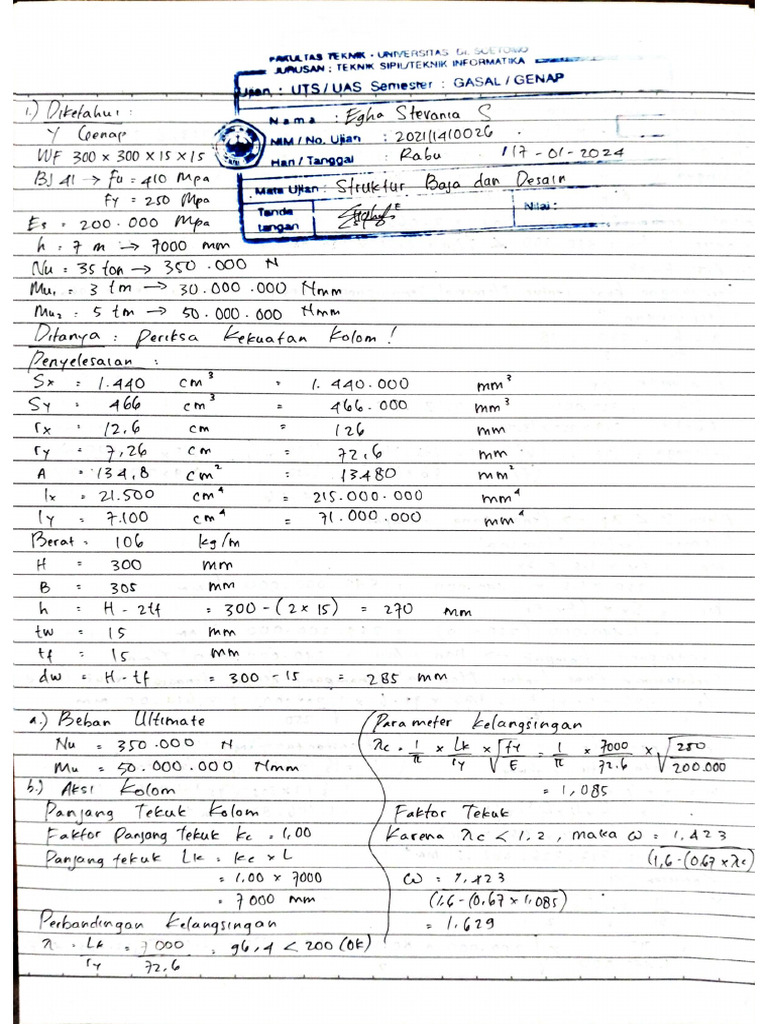 FAKULTAS TEKNIK - UNIVERSITAS Dr. SOETOMO
JURUSAN : TEKNIK SIPIL/TEKNIK INFORMATIKA
Ujian : UTS / UAS Semester : GASAL / GENAP
Nama : Egha Stevania S
NIM / No. Ujian : 202111410026
Hari / Tanggal : Rabu / 17 - 01 - 2024
Mata Ujian : Struktur Baja dan Desain
Tanda tangan
Nilai :
1.) Diketahui :
Y Genap
WF 300 × 300 × 15 × 15
BJ 41 → fu = 410 Mpa
fy = 250 Mpa
Es = 200.000 Mpa
h = 7 m → 7000 mm
Nu = 35 ton → 350.000 N
Mu₁ = 3 tm → 30.000.000 Nmm
Mu₂ = 5 tm → 50.000.000 Nmm
Ditanya : Periksa Kekuatan Kolom !
Penyelesaian :
Sx = 1.440 cm³ = 1.440.000 mm³
Sy = 466 cm³ = 466.000 mm³
rx = 12,6 cm = 126 mm
ry = 7,26 cm = 72,6 mm
A = 134,8 cm² = 13480 mm²
Ix = 21.500 cm⁴ = 215.000.000 mm⁴
Iy = 7.100 cm⁴ = 71.000.000 mm⁴
Berat = 106 kg/m
H = 300 mm
B = 305 mm
h = H - 2tf = 300 - (2 × 15) = 270 mm
tw = 15 mm
tf = 15 mm
dw = H - tf = 300 - 15 = 285 mm
a.) Beban Ultimate
Nu = 350.000 N
Mu = 50.000.000 Nmm
b.) Aksi Kolom
Panjang Tekuk Kolom
Faktor Panjang Tekuk kc = 1,00
Panjang tekuk Lk = kc × L
= 1,00 × 7000
= 7000 mm
Perbandingan Kelangsingan
λ = Lk/ry = 7000/72,6 = 96,4 < 200 (OK)
Parameter kelangsingan
λc = 1/π × Lk/ry × √(fy/E) = 1/π × 7000/72.6 × √(250/200.000)
= 1,085
Faktor Tekuk
Karena λc < 1,2 , maka ω = 1,423/(1,6-(0,67 × λc)
ω = 1,423/(1,6-(0,67 × 1,085)
= 1,629